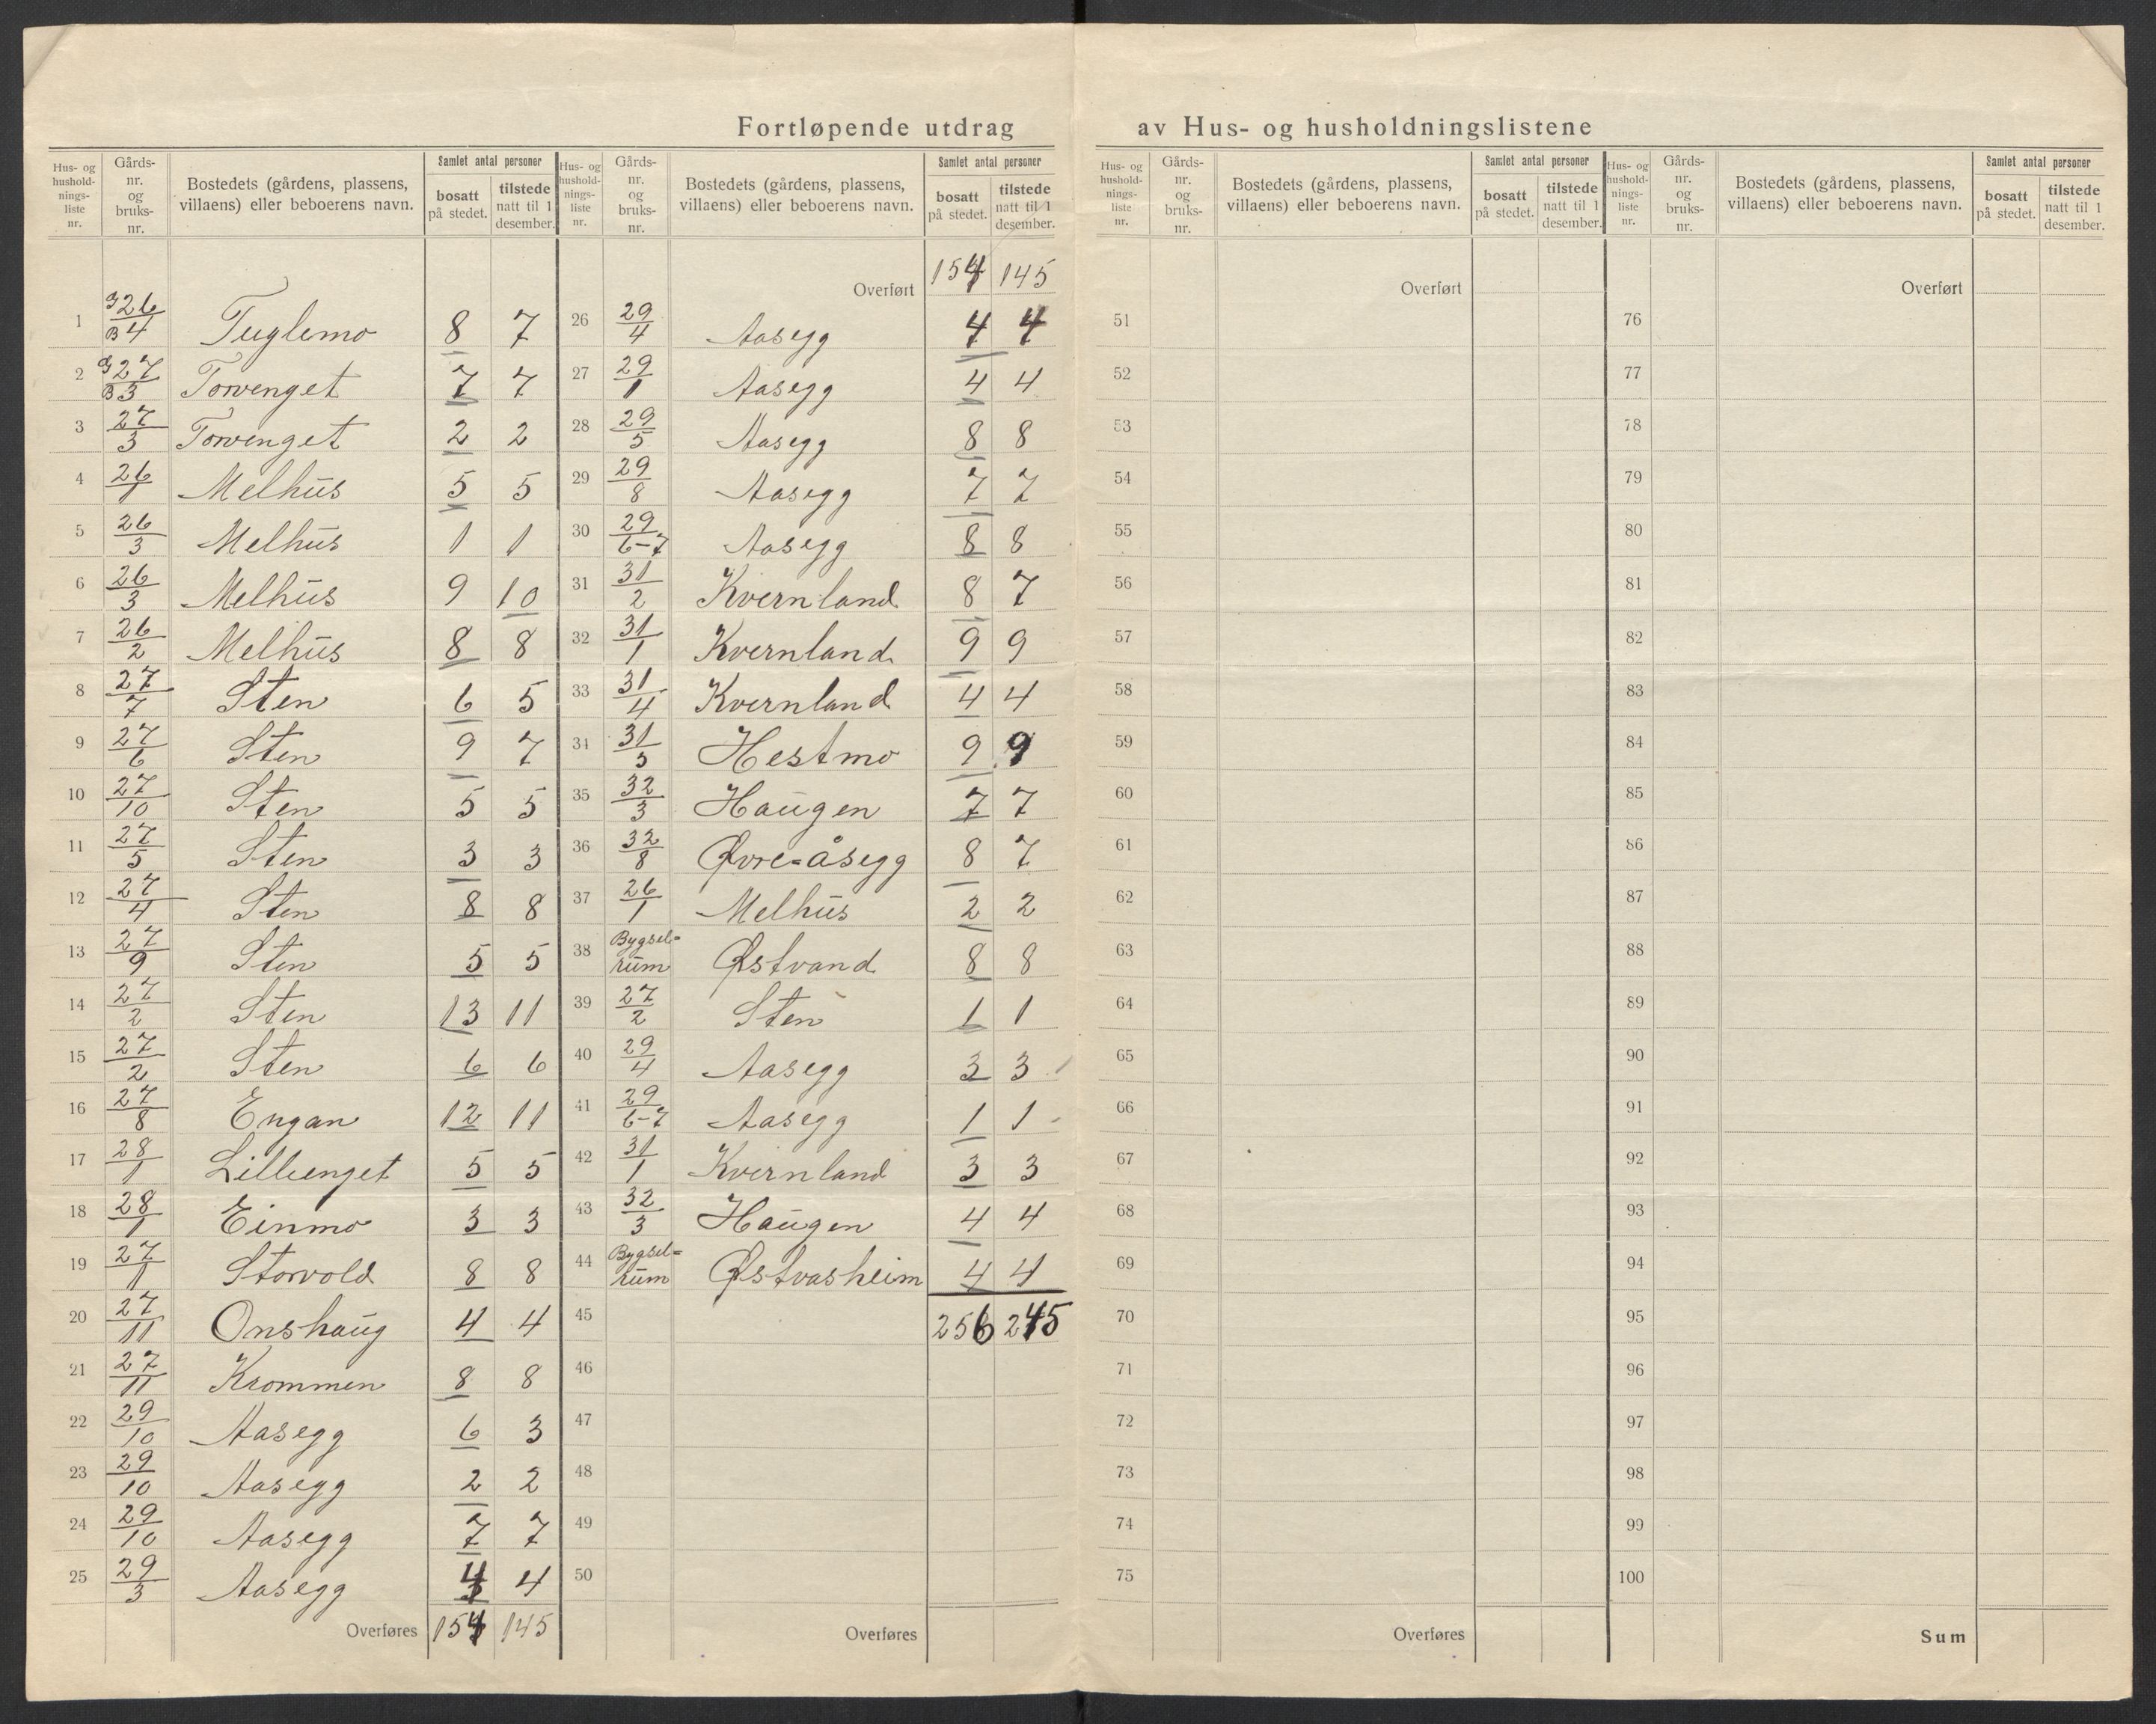 Fortløpende utdrag av Hus- og husholdningslistene
Hus- og husholdnings-liste nr. | Gårds-nr. og bruks-nr. | Bostedets (gårdens, plassens, villaens) eller beboerens navn. | Samlet antal personer | bosatt på stedet. | tilstede natt til 1 desember.
1 G26/B4 Fuglemo 8 7
2 G27/B3 Torvenget 7 7
3 27/3 Torvenget 2 2
4 26/1 Melhus 5 5
5 26/3 Melhus 1 1
6 26/3 Melhus 9 10
7 26/2 Melhus 8 8
8 27/7 Sten 6 5
9 27/6 Sten 9 7
10 27/10 Sten 5 5
11 27/5 Sten 3 3
12 27/4 Sten 8 8
13 27/9 Sten 5 5
14 27/2 Sten 13 11
15 27/2 Sten 6 6
16 27/8 Engan 12 11
17 28/1 Lillienget 5 5
18 28/1 Einmo 3 3
19 27/1 Storvold 8 8
20 27/11 Onshaug 4 4
21 27/11 Krommen 8 8
22 29/10 Aasegg 6 3
23 29/10 Aasegg 2 2
24 29/10 Aasegg 7 7
25 29/3 Aasegg 4 4
Overføres 154 145
Hus- og husholdnings-liste nr. | Gårds-nr. og bruks-nr. | Bostedets (gårdens, plassens, villaens) eller beboerens navn. | Samlet antal personer | bosatt på stedet. | tilstede natt til 1 desember.
Overført 154 145
26 29/4 Aasegg 4 4
27 29/1 Aasegg 4 4
28 29/5 Aasegg 8 8
29 29/8 Aasegg 7 7
30 29/6-7 Aasegg 8 8
31 31/2 Kvernland 8 7
32 31/1 Kvernland 9 9
33 31/4 Kvernland 4 4
34 31/3 Hestmo 9 9
35 32/3 Haugen 7 7
36 32/8 Øvre=åsegg 8 7
37 26/1 Melhus 2 2
38 Bygsel=rum Østvand 8 8
39 27/2 Sten 1 1
40 29/4 Aasegg 3 3
41 29/6-7 Aasegg 1 1
42 31/1 Kvernland 3 3
43 32/3 Haugen 4 4
44 Bygsel=rum Østvasheim 4 4
45 256 245
46
47
48
49
50
Overføres
Hus- og husholdnings-liste nr. | Gårds-nr. og bruks-nr. | Bostedets (gårdens, plassens, villaens) eller beboerens navn. | Samlet antal personer | bosatt på stedet. | tilstede natt til 1 desember.
Overført
51
52
53
54
55
56
57
58
59
60
61
62
63
64
65
66
67
68
69
70
71
72
73
74
75
Overføres
Hus- og husholdnings-liste nr. | Gårds-nr. og bruks-nr. | Bostedets (gårdens, plassens, villaens) eller beboerens navn. | Samlet antal personer | bosatt på stedet. | tilstede natt til 1 desember.
Overført
76
77
78
79
80
81
82
83
84
85
86
87
88
89
90
91
92
93
94
95
96
97
98
99
100
Sum